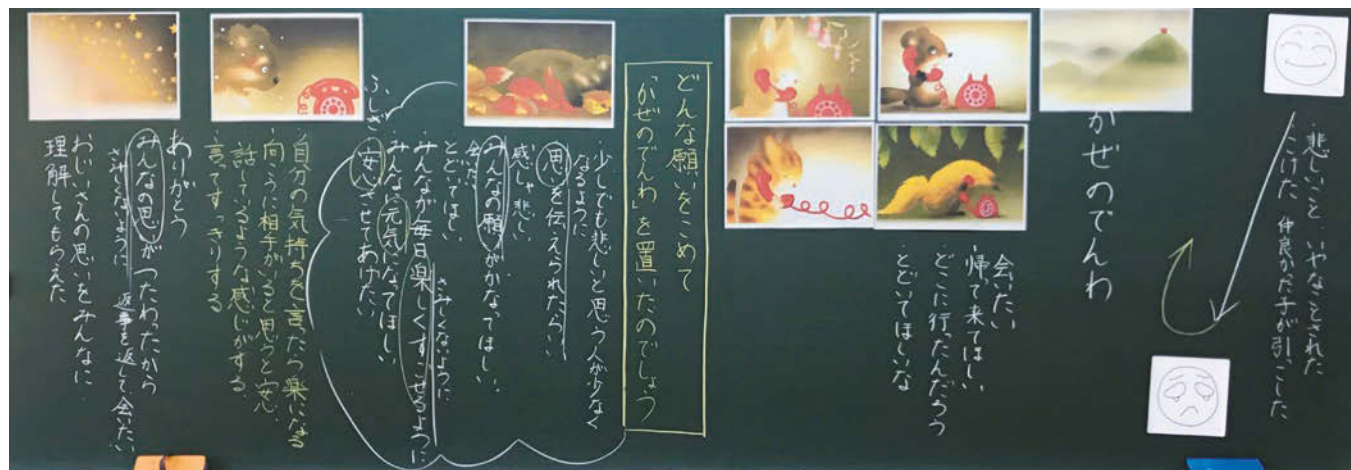 ・悲しいこと、いやなことされた
こけた 仲良かた子が引こした
かぜのでんわ
会いたい
帰て来てほしい
どこに行ったんだろう
とどいてほしいな
どんな願いをこめて
「かぜのでんわ」を置いたのでしょう
・少しでも悲しいと思う人が少なく
なるように
思を伝えられたらいい
感しゃ 悲しい
みんなの願いがかなってほしい、
会いたい
とどいてほしい
さみしくないように
・みんなが毎日楽しくすごせるように
みんなに元気になってほしい
安心させてあげたい
ふしぎ
・自分の気持ちを言ったら楽になる
・向こうに相手がいると思うと安心
話しているような感じがする
・言てすっきりする
ありがとう
みんなの思いがつたわったから
さみしくないように 返事を返して、会いたい
おじいさんの思いをみんなに
理解してもらえた